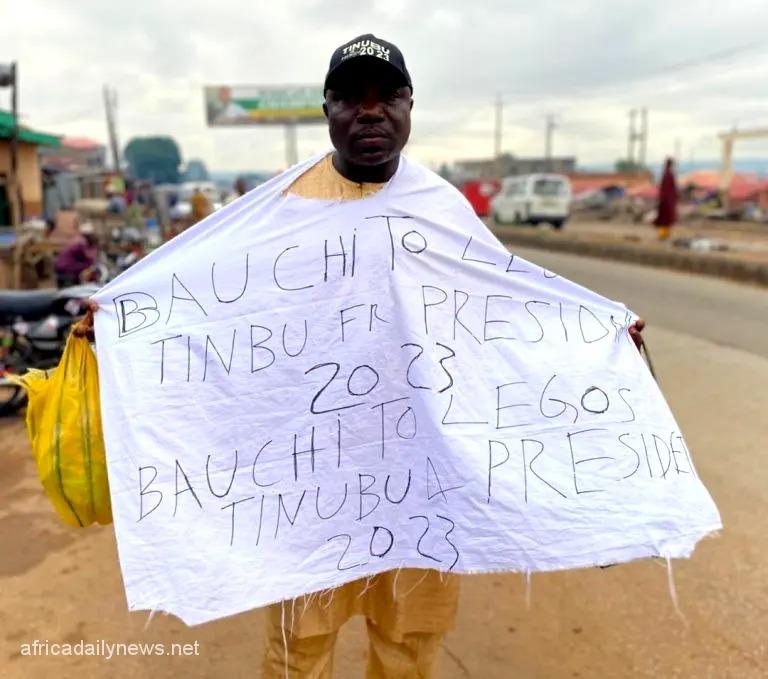 TINUBU
2023
BAUCHI TO
TINBU FR PRESID
2023
BAUCHI TO LEGOS
TINUBU A PRESIDE
2023
africadailynews.net